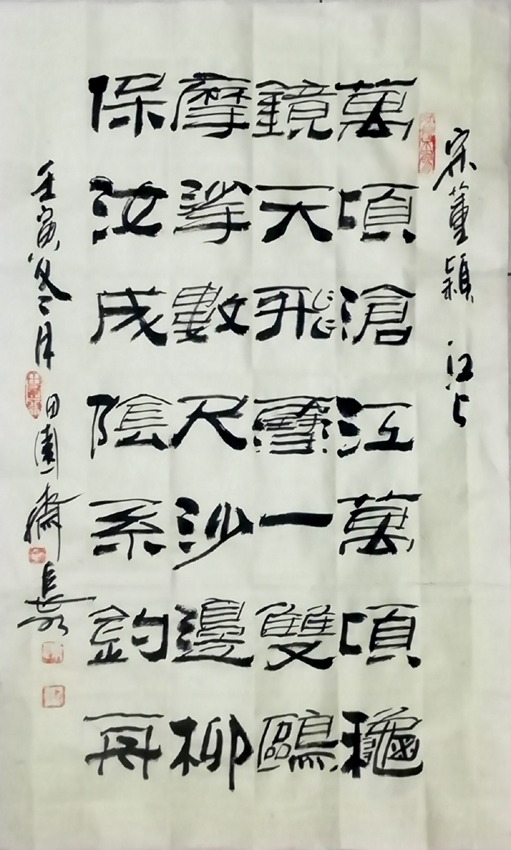 宋董穎 江上
萬頃滄江萬頃龝
鏡天飛雪一雙鷗
摩挲數尺沙邊柳
保汝成陰系釣舟
壬寅冬月田園齋